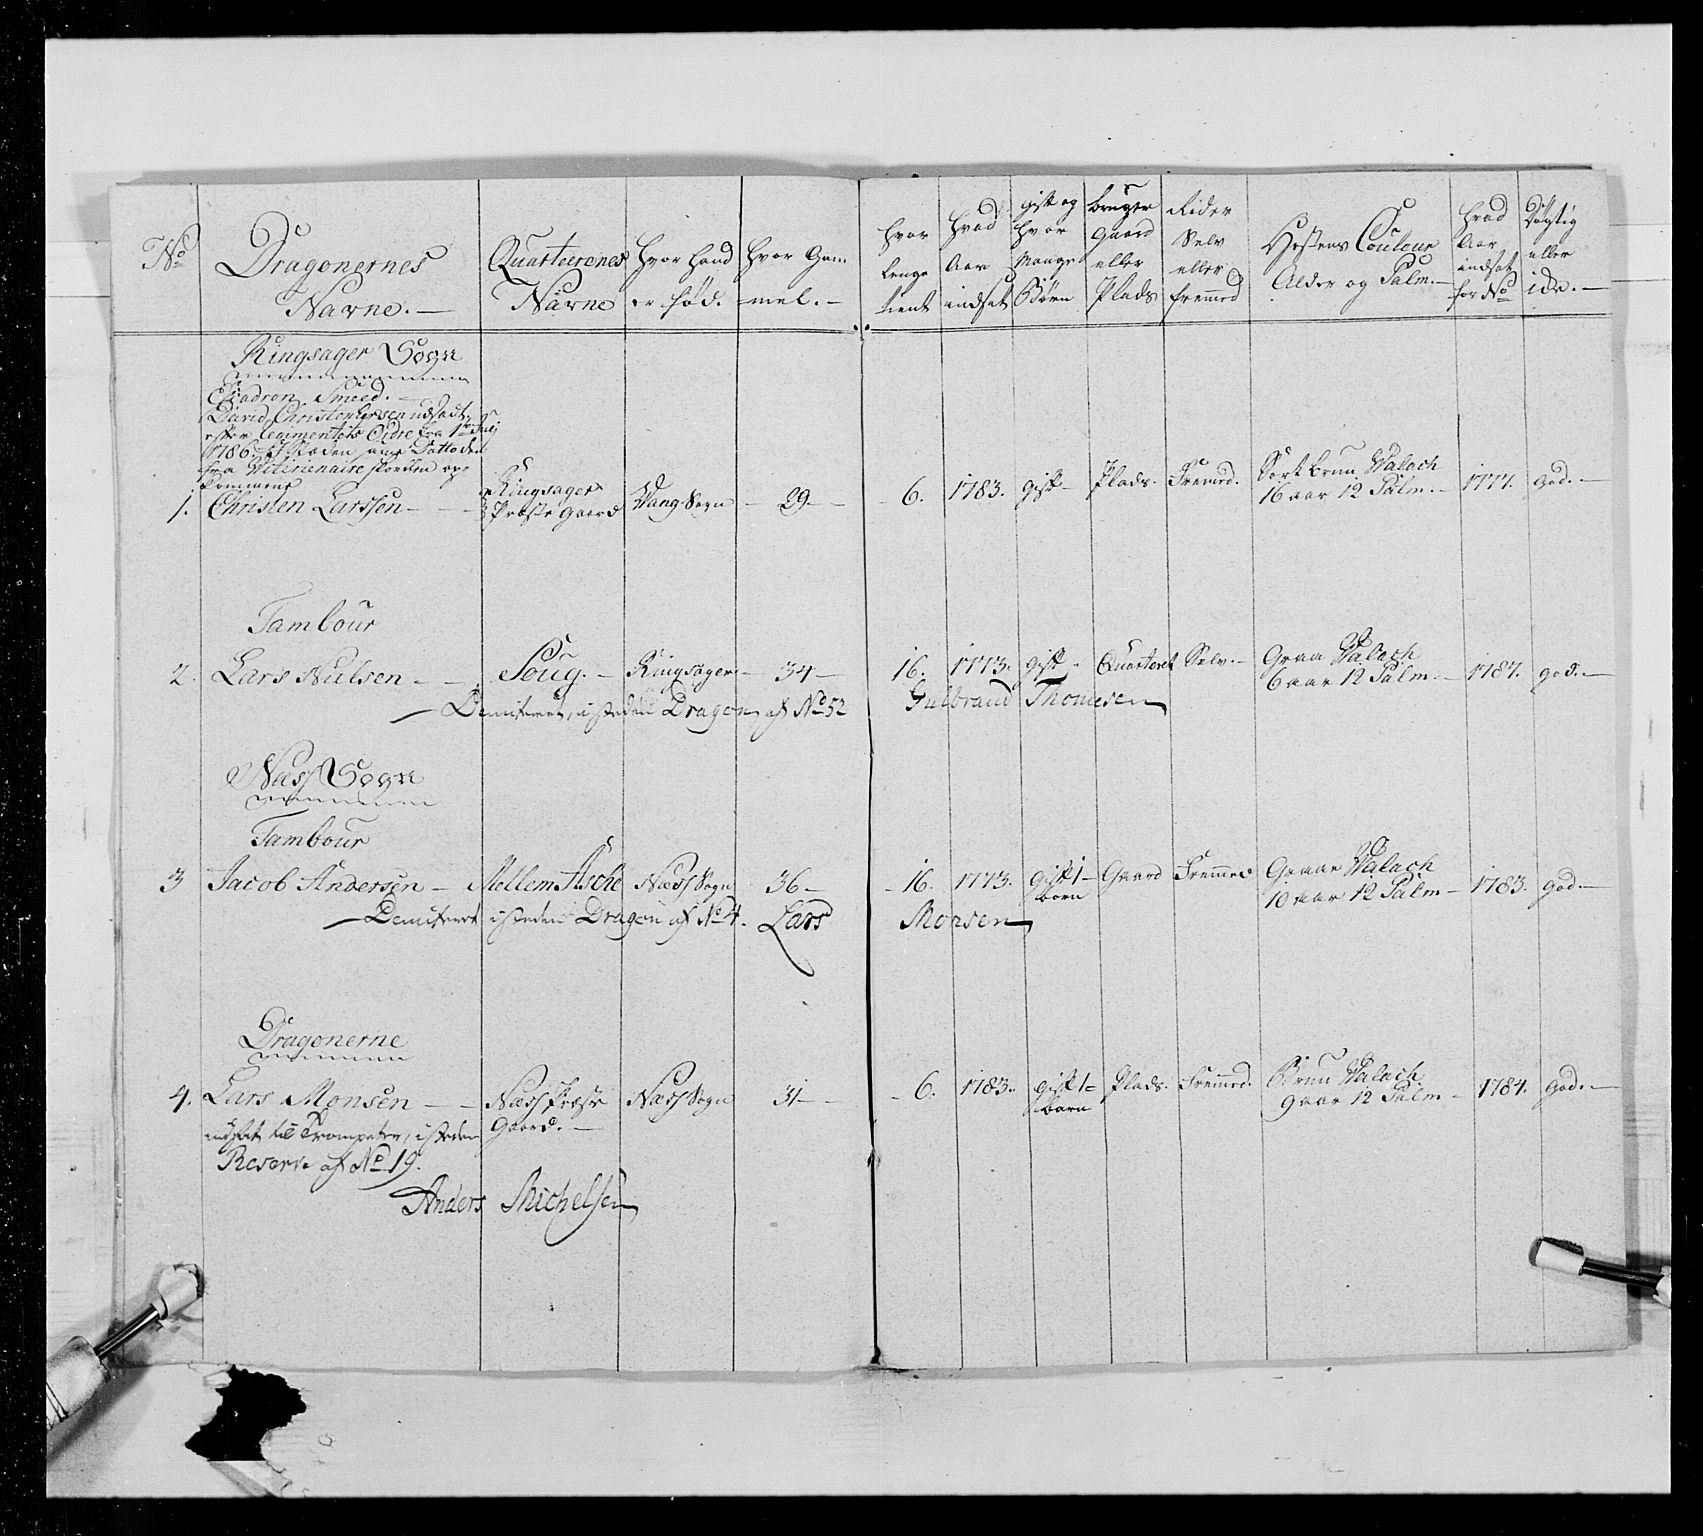 No
Dragonernes
Navne.
Quarteerenes
Navne
Hvor hand
er fød.
Hvor Gam
mel.
Hvor
lenge
tient
Hvad
Aar
indsat
gift og
hvor
Mange
Børn
bruger
Gaard
eller
Plads
Rider
Selv
eller
fremmed
Hestens Couleur
Alder og Palm.
Hvad
Aar
indsat
for No
Dygtig
eller
ide.
Ringsager Sogn
Esiadron Smeed.
David Christophersen udsadt
efter Regimentets Ordre fra 1ste
1786
fra Vitirienaire
kommen
1. Christen Larssen Ringsager Præste Gaard Vang Sogn 29 6. 1783. gift Plads. Fremed. Sort brun Valach 16 aar 12 Palm. 1777. god.
Tambour
2. Lars Nielsen Soug. Ringsager 34 16. 1773. gift Quarteret Selv. Graa Valach 6 aar 12 Palm. 1787. god.
Demiteret, isteden Dragon af No 52 Gulbrand Thomesen
Næss Sogn
Tambour
3 Jacob Andersen Mellem Asche Næss Sogn 36 16. 1773. Gift 1 barn Gaard Fremmed Graae Valach 10 aar 12 Palm 1783. god.
Demiteret isteden Dragon af No 4. Lars Monsen
Dragonerne
4. Lars Monsen Næss Præste Gaard. Næss Sogn 31 6. 1783. gift 1 barn Plads. Fremmed. Brun Valach 9 aar 12 Palm 1784. god.
udsat til Trompeter, isteden
Reserve af No 19.
Anders Michelsen